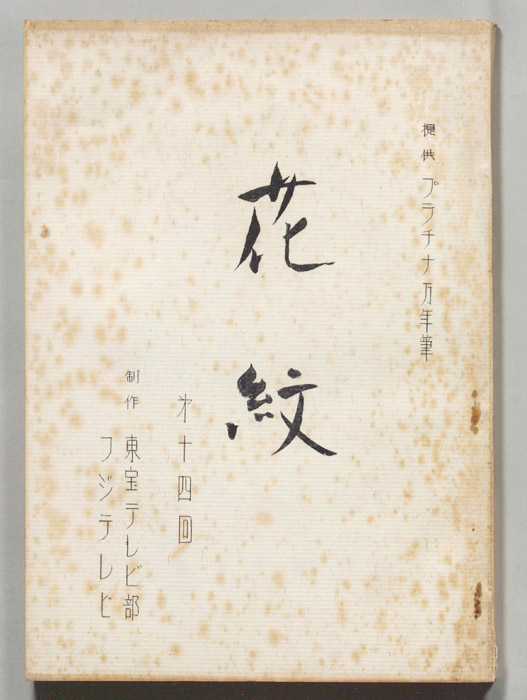 提供 プラチナ万年筆
花紋
第十四回
制作 東宝テレビ部
フジテレビ